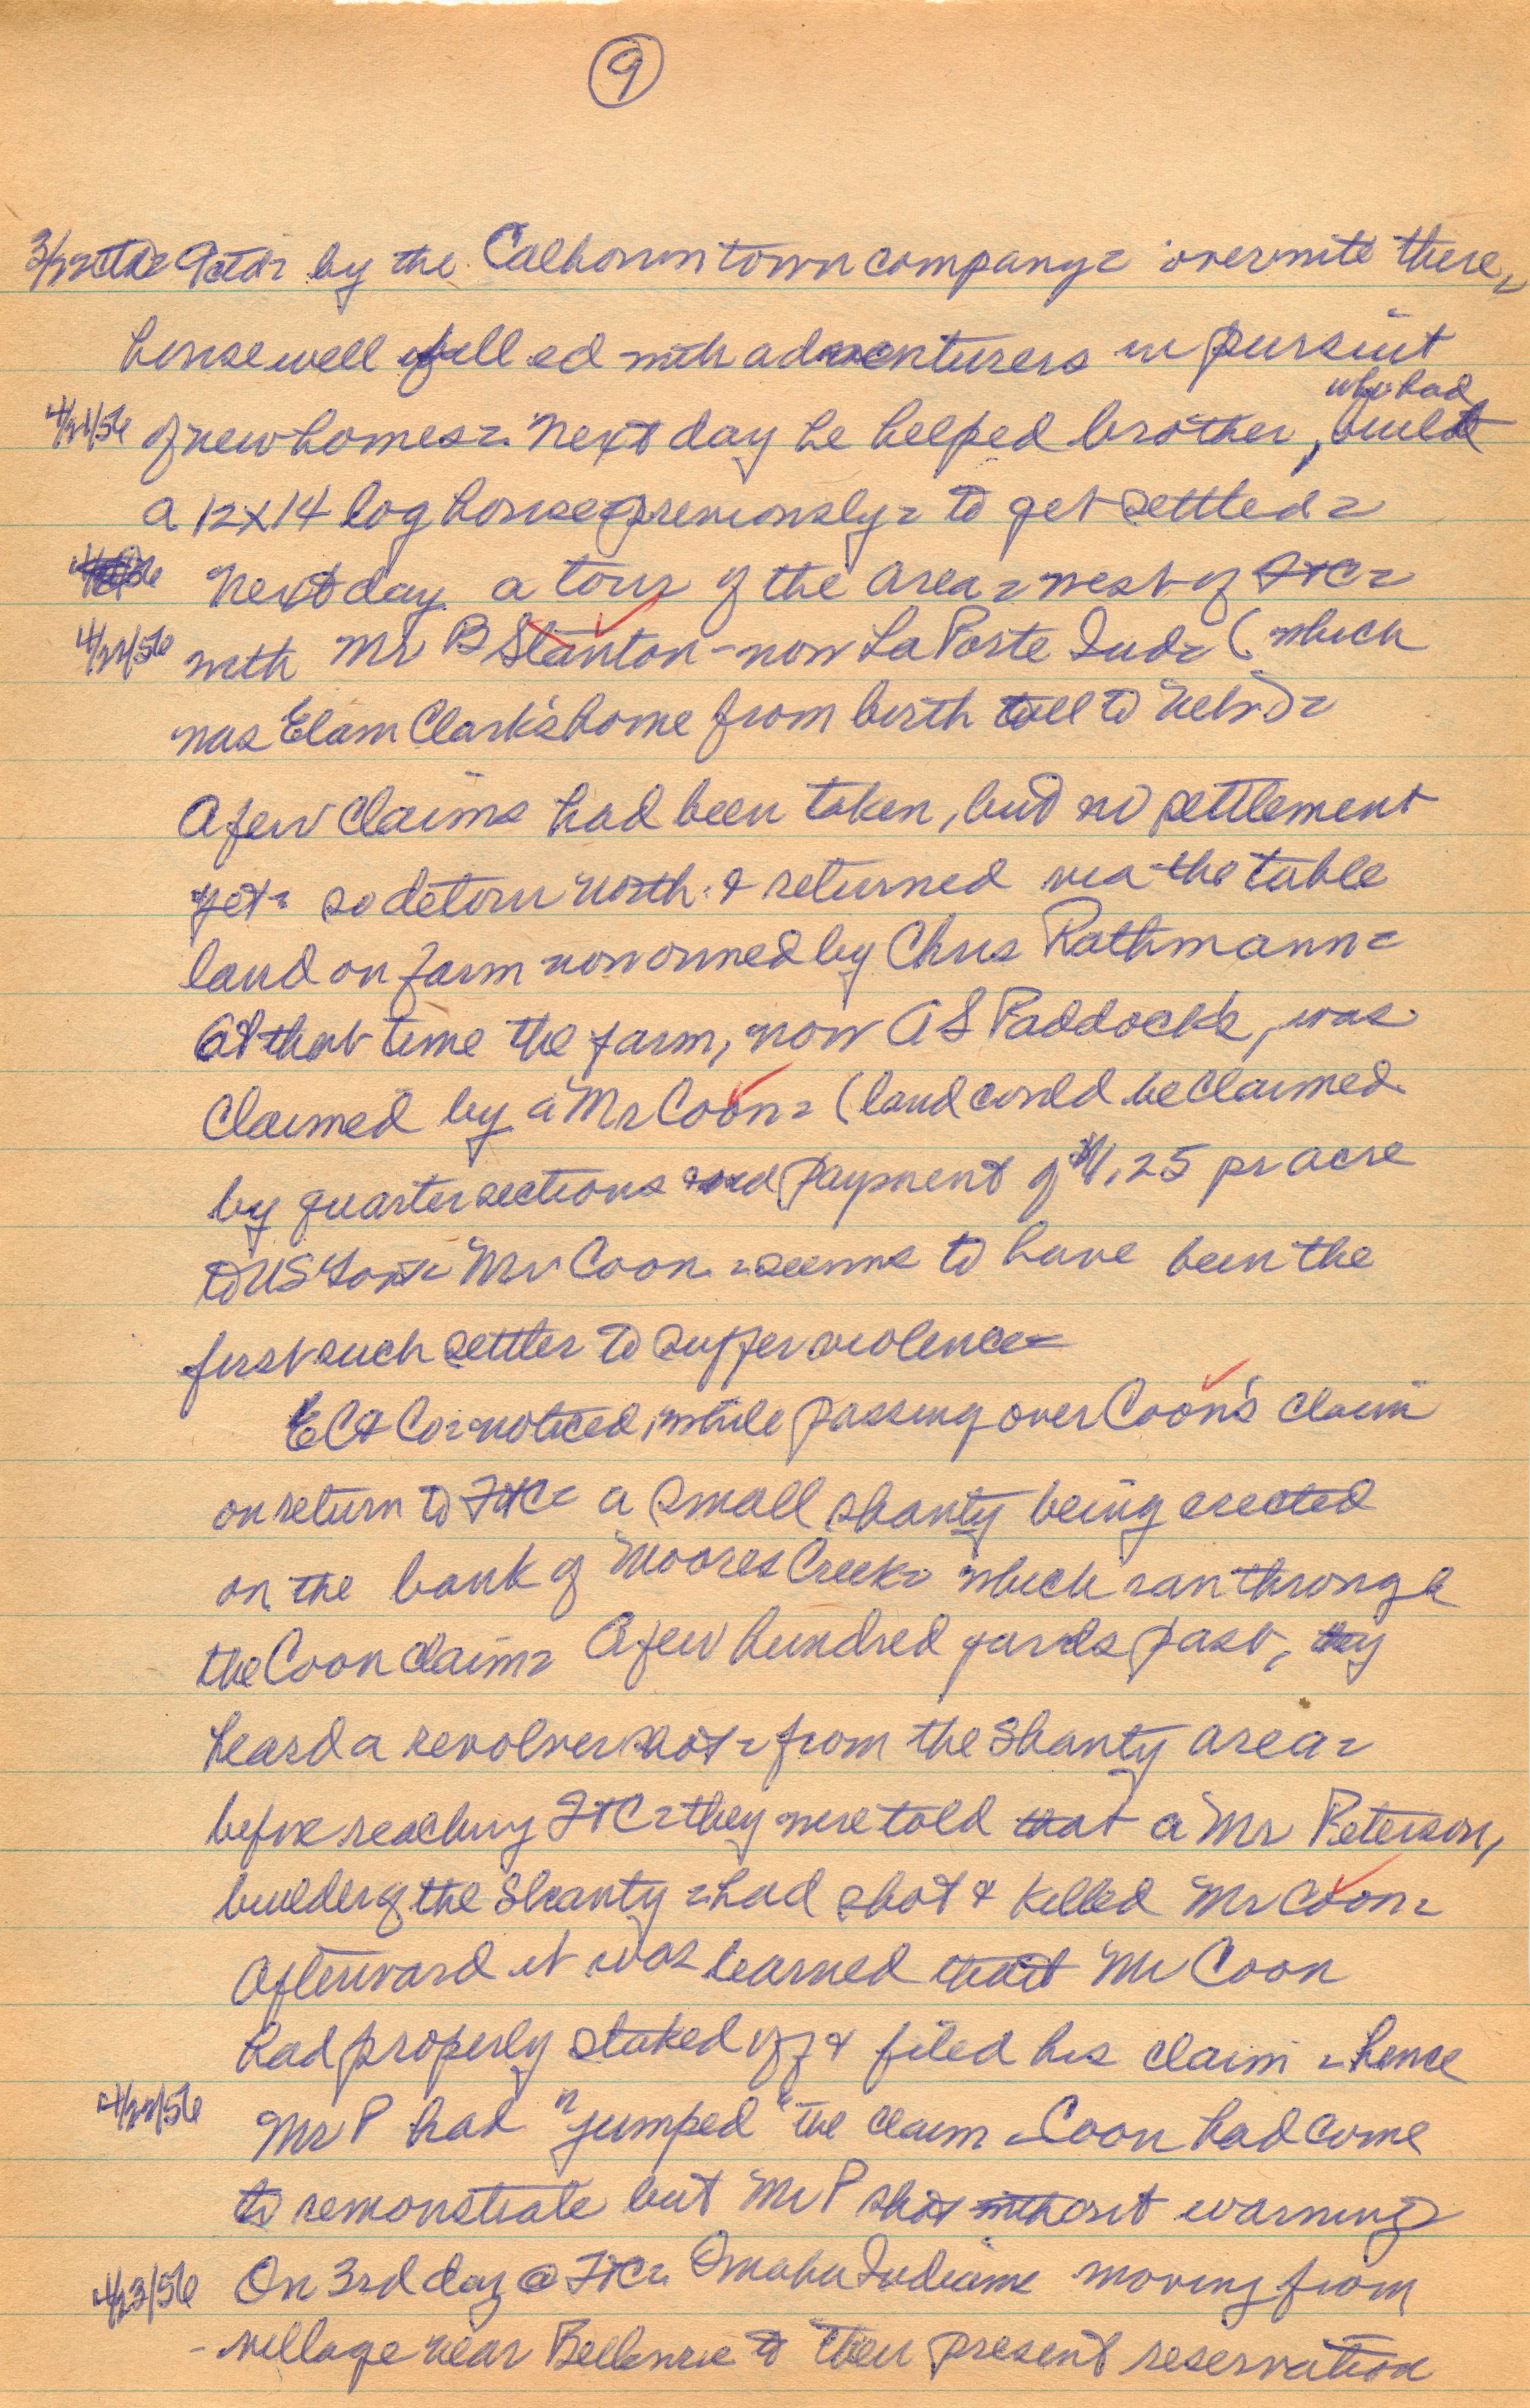 9
by the Calhoun town company = overnite there,
house well filled with adventurers in pursuit
who had
4/21/56 of new homes = Next day he helped brother, built
a 12x14 log house previously = to get settled =
Next day a tour of the area = west of FtC =
4/22/56 with Mr B Stanton - now LaPorte Ind = (which
was Elam Clark's home from birth till to Nebr) =
A few claims had been taken, but no settlement
yet = so detour North & returned via the table
land on farm now owned by Chris Rathmann =
At that time the farm, now A S Paddock's, was
claimed by a Mr Coon = (land could be claimed
by quarter sections and payment of $1.25 pr acre
to US Govt = Mr Coon = seems to have been the
first such settler to suffer violence =
EC & Co = noticed, while passing over Coon's claim
on return to FtC = a small shanty being erected
on the bank of Moores Creek = which ran through
the Coon claim = A few hundred yards past, they
heard a revolver shot = from the shanty area =
before reaching FtC = they were told that a Mr Peterson,
builder of the shanty = had shot & killed Mr Coon =
Afterward it was learned that Mr Coon
had properly staked off & filed his claim = hence
4/22/56 Mr P had "jumped" the claim = Coon had come
to remonstrate but Mr P shot without warning =
4/23/56 On 3rd day @ FtC = Omaha Indians moving from
- village near Bellevue to their present reservation